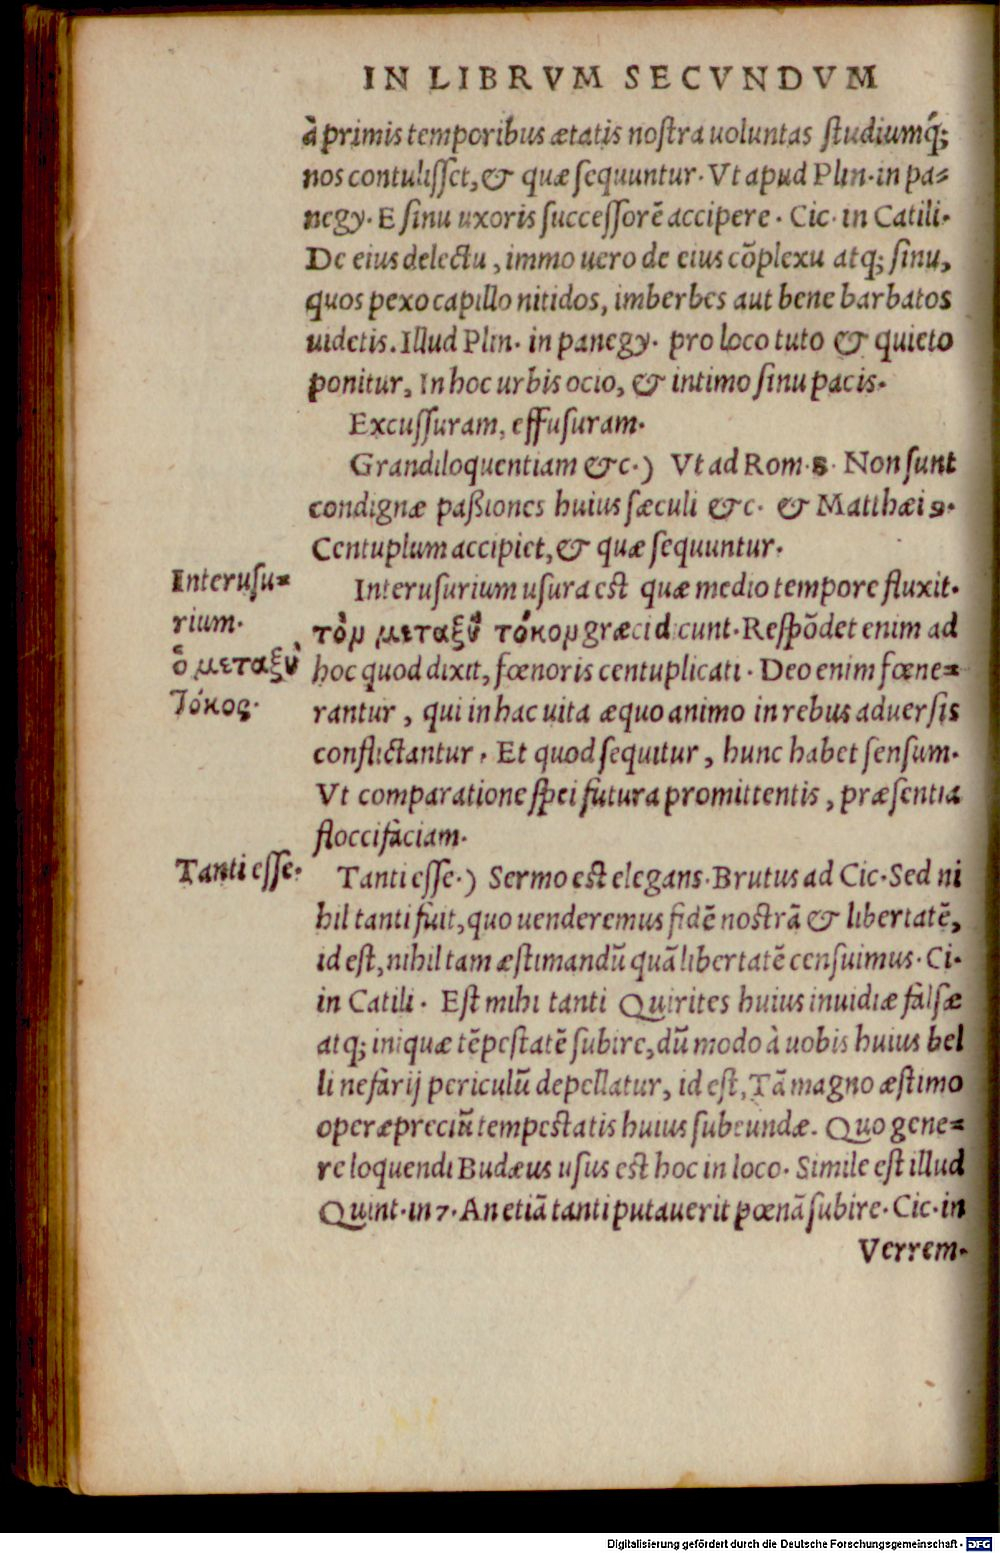 IN LIBRVM SECVNDVM
à primis temporibus ætatis nostra uoluntas studiumq́;
nos contulisset, & quæ sequuntur. Vt apud Plin. in pa-
negy. E sinu uxoris successorẽ accipere. Cic. in Catili.
De eius delectu, immo uero de eius cõplexu atq; sinu,
quos pexo capillo nitidos, imberbes aut bene barbatos
uidetis. Illud Plin. in panegy. pro loco tuto & quieto
ponitur, In hoc urbis ocio, & intimo sinu pacis.
Excussuram, effusuram.
Grandiloquentiam &c.) Vt ad Rom. 8. Non sunt
condignæ paßiones huius sæculi &c. & Matthæi 9.
Centuplum accipiet, & quæ sequuntur.
Interusu-
rium.
ὁ μεταξὺ
τόκος.
Interusurium usura est quæ medio tempore fluxit.
τὸν μεταξὺ τόκον græci dicunt. Respõdet enim ad
hoc quod dixit, fœnoris centuplicati. Deo enim fœne-
rantur, qui in hac uita æquo animo in rebus aduersis
conflictantur. Et quod sequitur, hunc habet sensum.
Vt comparatione spei futura promittentis, præsentia
floccifaciam.
Tanti esse.
Tanti esse.) Sermo est elegans. Brutus ad Cic. Sed ni
hil tanti fuit, quo uenderemus fidẽ nostrã & libertatẽ,
id est, nihil tam æstimandũ quã libertatẽ censuimus. Ci.
in Catili. Est mihi tanti Quirites huius inuidiæ falsæ
atq; iniquæ tẽpestatẽ subire, dũ modo à uobis huius bel
li nefarij periculũ depellatur, id est, Tã magno æstimo
operæpreciũ tempestatis huius subeundæ. Quo gene-
re loquendi Budæus usus est hoc in loco. Simile est illud
Quint. in 7. An etiã tanti putauerit pœnã subire. Cic. in
Verrem.
Digitalisierung gefördert durch die Deutsche Forschungsgemeinschaft - DFG